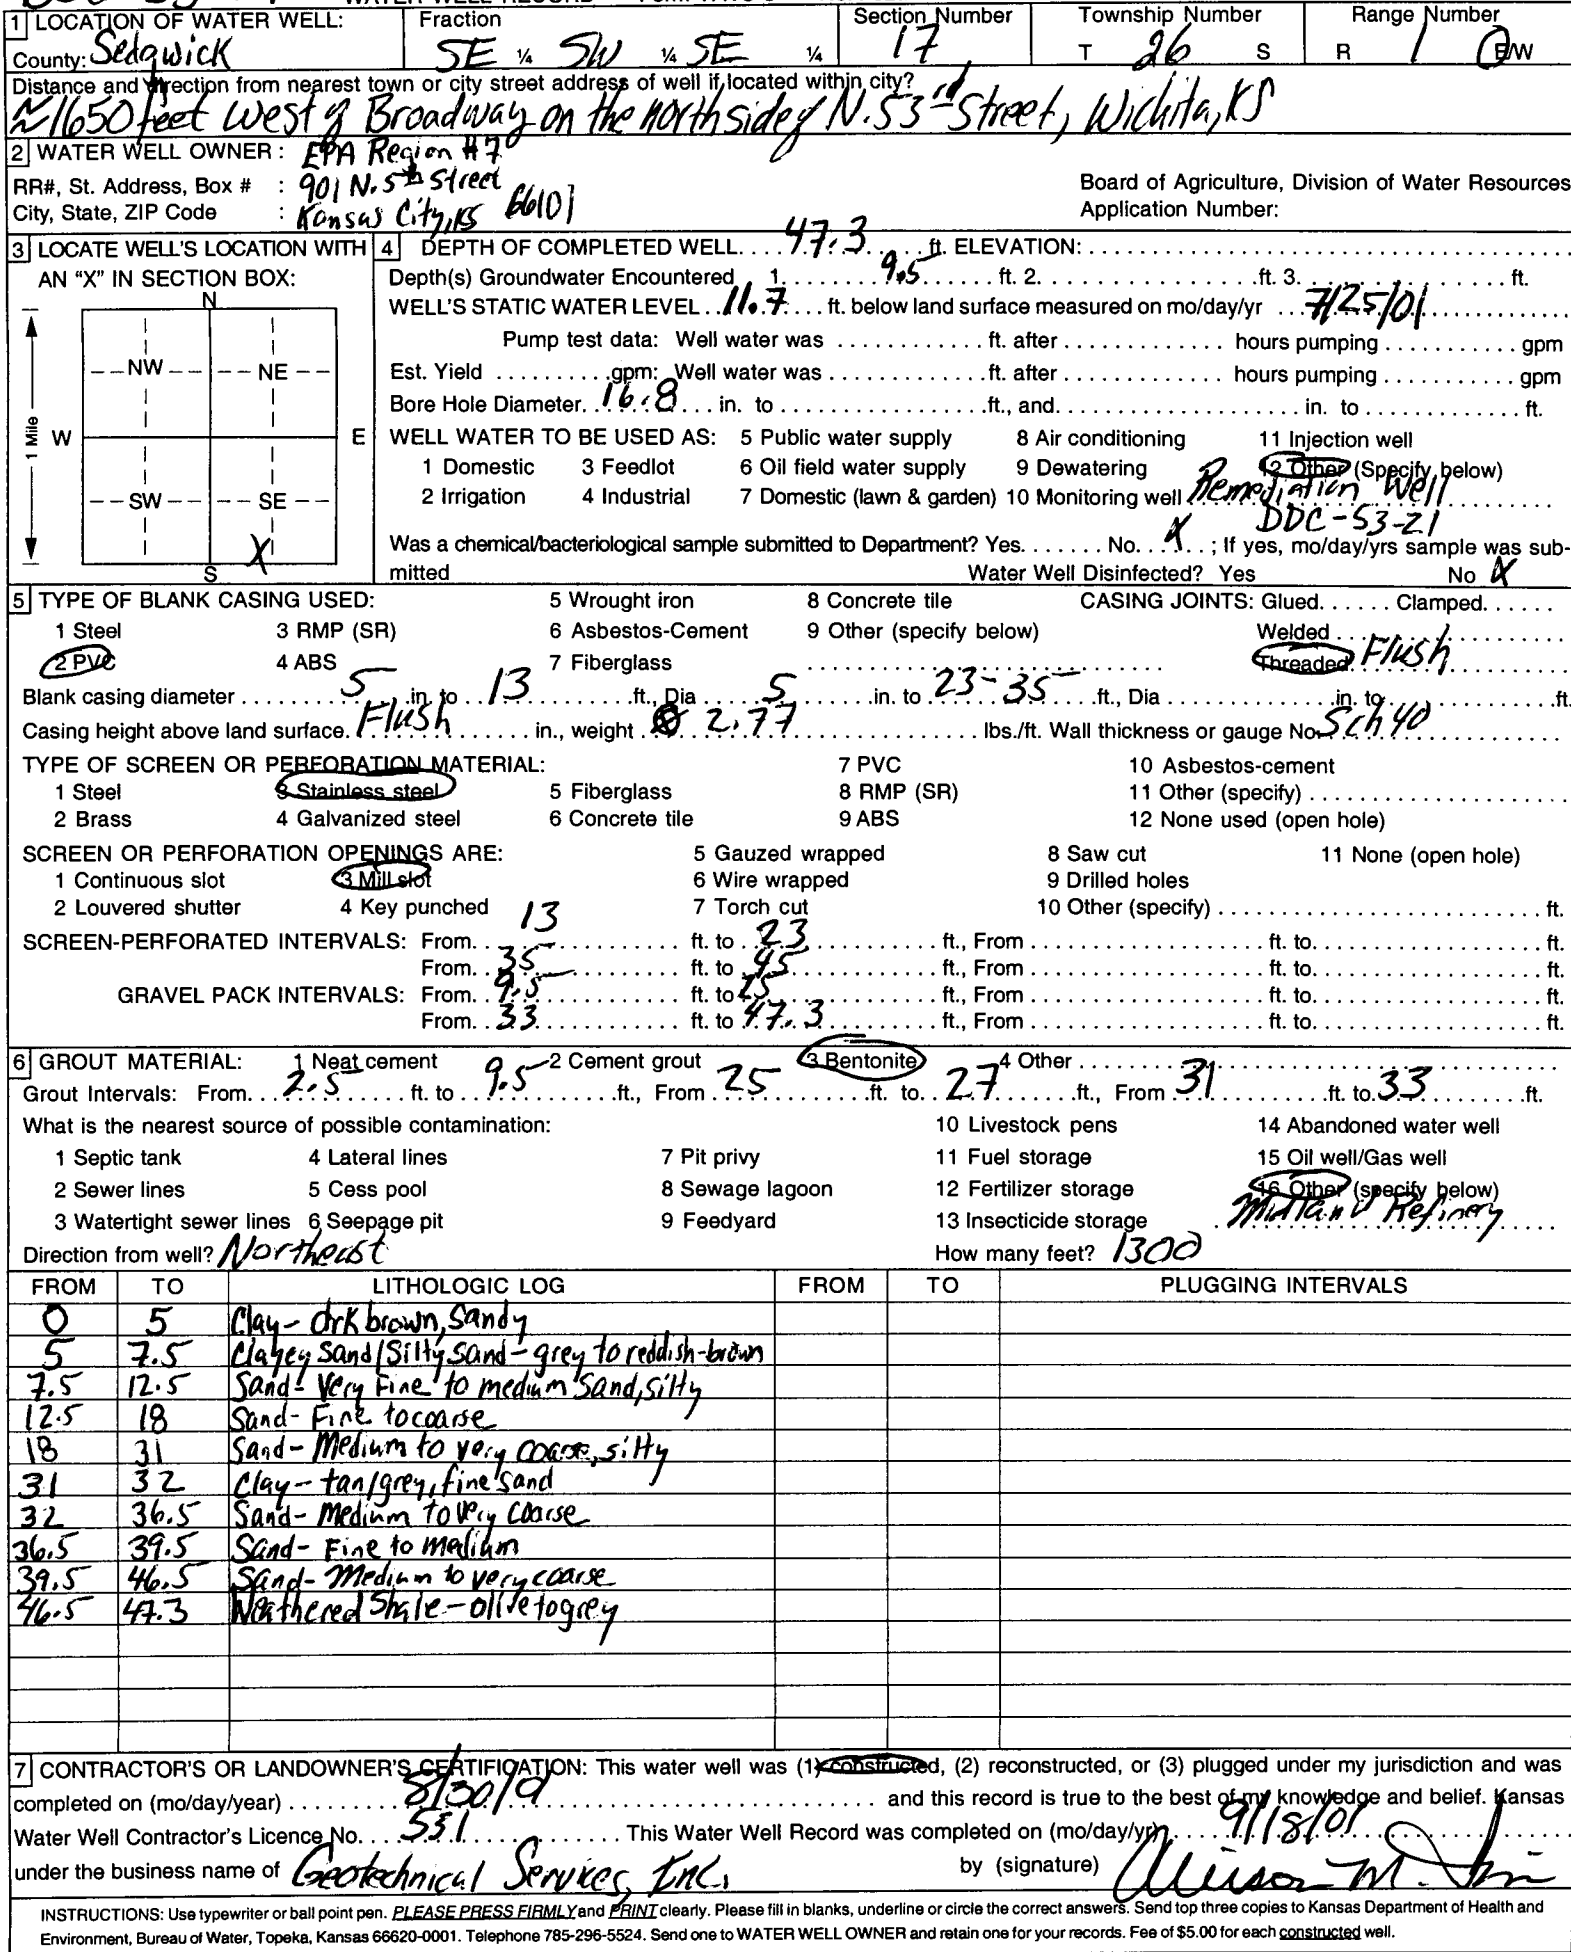 WATER WELL RECORD
1 LOCATION OF WATER WELL: Fraction Section Number Township Number Range Number
County: Sedgwick SE ¼ SW ¼ SE ¼ 17 T 26 S R 1 E/W
Distance and direction from nearest town or city street address of well if located within city?
≈1650 feet west of Broadway on the north side of N. 53rd Street, Wichita, KS
2 WATER WELL OWNER: EPA Region #7
RR#, St. Address, Box # : 901 N. 5th Street Board of Agriculture, Division of Water Resources
City, State, ZIP Code : Kansas City, KS 66101 Application Number:
3 LOCATE WELL'S LOCATION WITH AN "X" IN SECTION BOX:
N
NW NE
1 Mile W E
SW SE
X
S
4 DEPTH OF COMPLETED WELL 47.3 ft. ELEVATION:
Depth(s) Groundwater Encountered 1. 9.5 ft. 2. ft. 3. ft.
WELL'S STATIC WATER LEVEL 11.7 ft. below land surface measured on mo/day/yr 7/25/01
Pump test data: Well water was ft. after hours pumping gpm
Est. Yield gpm: Well water was ft. after hours pumping gpm
Bore Hole Diameter 16.8 in. to ft., and in. to ft.
WELL WATER TO BE USED AS: 5 Public water supply 8 Air conditioning 11 Injection well
1 Domestic 3 Feedlot 6 Oil field water supply 9 Dewatering 12 Other (Specify below)
2 Irrigation 4 Industrial 7 Domestic (lawn & garden) 10 Monitoring well Remediation Well
DDC-53-21
Was a chemical/bacteriological sample submitted to Department? Yes No X ; If yes, mo/day/yrs sample was sub-
mitted Water Well Disinfected? Yes No X
5 TYPE OF BLANK CASING USED: 5 Wrought iron 8 Concrete tile CASING JOINTS: Glued Clamped
1 Steel 3 RMP (SR) 6 Asbestos-Cement 9 Other (specify below) Welded
2 PVC 4 ABS 7 Fiberglass Threaded Flush
Blank casing diameter 5 in. to 13 ft., Dia 5 in. to 23-35 ft., Dia in. to ft.
Casing height above land surface Flush in., weight 2.77 lbs./ft. Wall thickness or gauge No. Sch 40
TYPE OF SCREEN OR PERFORATION MATERIAL: 7 PVC 10 Asbestos-cement
1 Steel 3 Stainless steel 5 Fiberglass 8 RMP (SR) 11 Other (specify)
2 Brass 4 Galvanized steel 6 Concrete tile 9 ABS 12 None used (open hole)
SCREEN OR PERFORATION OPENINGS ARE: 5 Gauzed wrapped 8 Saw cut 11 None (open hole)
1 Continuous slot 3 Mill slot 6 Wire wrapped 9 Drilled holes
2 Louvered shutter 4 Key punched 7 Torch cut 10 Other (specify) ft.
SCREEN-PERFORATED INTERVALS: From 13 ft. to 23 ft., From ft. to ft.
From 35 ft. to 45 ft., From ft. to ft.
GRAVEL PACK INTERVALS: From 9.5 ft. to 25 ft., From ft. to ft.
From 33 ft. to 47.3 ft., From ft. to ft.
6 GROUT MATERIAL: 1 Neat cement 2 Cement grout 3 Bentonite 4 Other
Grout Intervals: From 2.5 ft. to 9.5 ft., From 25 ft. to 27 ft., From 31 ft. to 33 ft.
What is the nearest source of possible contamination: 10 Livestock pens 14 Abandoned water well
1 Septic tank 4 Lateral lines 7 Pit privy 11 Fuel storage 15 Oil well/Gas well
2 Sewer lines 5 Cess pool 8 Sewage lagoon 12 Fertilizer storage 16 Other (specify below)
3 Watertight sewer lines 6 Seepage pit 9 Feedyard 13 Insecticide storage Midland Refinery
Direction from well? Northeast How many feet? 1300
FROM TO LITHOLOGIC LOG FROM TO PLUGGING INTERVALS
0 5 Clay- drk brown, Sandy
5 7.5 Clayey Sand/Silty Sand- grey to reddish-brown
7.5 12.5 Sand- Very Fine to medium Sand, silty
12.5 18 Sand- Fine to coarse
18 31 Sand- Medium to very coarse, silty
31 32 Clay- tan/grey, fine sand
32 36.5 Sand- Medium to very coarse
36.5 39.5 Sand- Fine to medium
39.5 46.5 Sand- Medium to very coarse
46.5 47.3 Weathered Shale- olive to grey
7 CONTRACTOR'S OR LANDOWNER'S CERTIFICATION: This water well was (1) constructed, (2) reconstructed, or (3) plugged under my jurisdiction and was
completed on (mo/day/year) 8/30/01 and this record is true to the best of my knowledge and belief. Kansas
Water Well Contractor's Licence No. 531 This Water Well Record was completed on (mo/day/yr) 9/18/01
under the business name of Geotechnical Services, Inc. by (signature)
INSTRUCTIONS: Use typewriter or ball point pen. PLEASE PRESS FIRMLY and PRINT clearly. Please fill in blanks, underline or circle the correct answers. Send top three copies to Kansas Department of Health and
Environment, Bureau of Water, Topeka, Kansas 66620-0001. Telephone 785-296-5524. Send one to WATER WELL OWNER and retain one for your records. Fee of $5.00 for each constructed well.